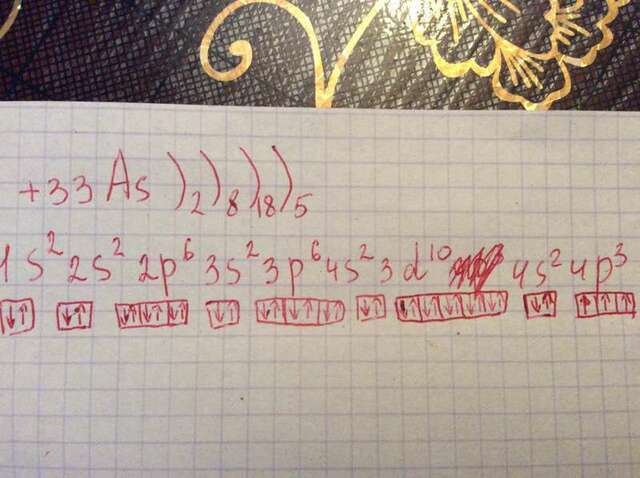 +33 As )₂ )₈ )₁₈ )₅
1s² 2s² 2p⁶ 3s² 3p⁶ 4s² 3d¹⁰ 4s² 4p³
↓↑ ↓↑ ↓↑ ↓↑ ↓↑ ↓↑ ↓↑ ↓↑ ↓↑ ↓↑ ↓↑ ↓↑ ↓↑ ↓↑ ↓↑ ↓↑ ↑ ↑ ↑